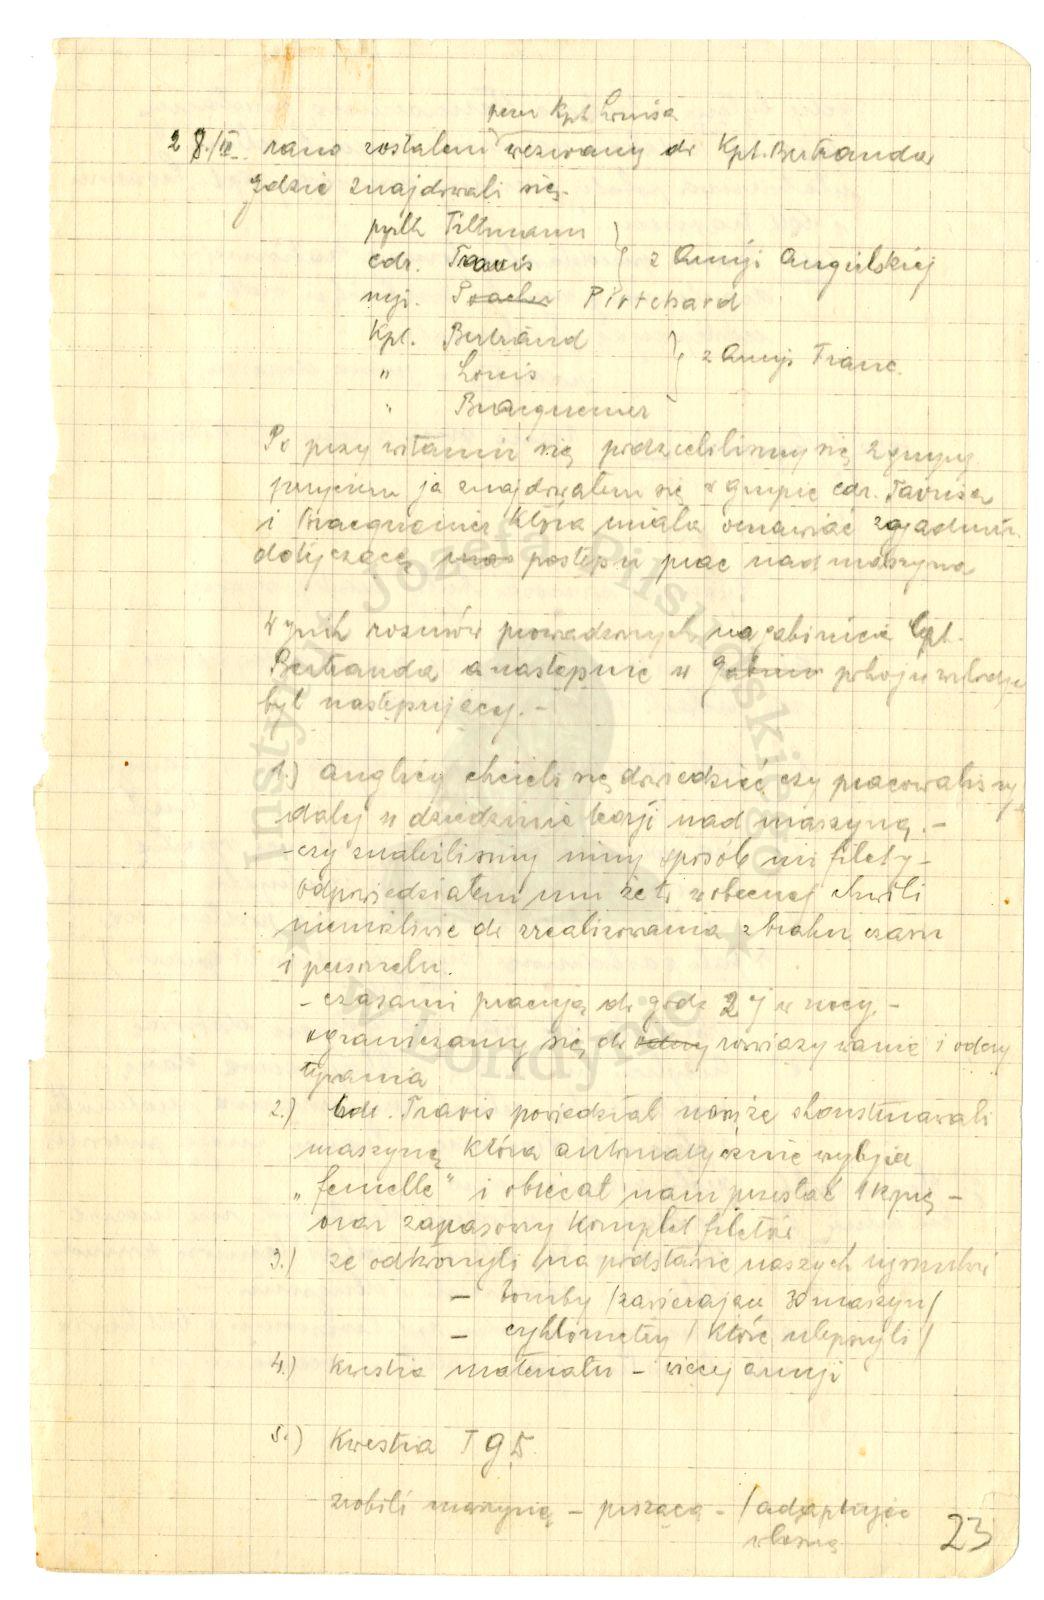 przez Kpt. Louisa
28./IV. rano zostałem wezwany do Kpt. Bertranda
gdzie znajdowali się.
ppłk Tiltmann
cdr. Travis } z Armji Angielskiej
mji. Poacher Pirtchard
Kpt. Bertrand
" Louis } z Armji Franc.
" Bracquemer
Po przywitaniu się podzieliliśmy się 2 grupy
przyczem ja znajdowałem się w grupie cdr. Travisa
i Bracquemier która miała omawiać zgadnien.
dotyczące postępu prac nad maszyną
Wynik rozmów prowadzonych na gabinecie kpt.
Bertranda a następnie w gabine pokoju
był następujący. -
1.) anglicy chcieli się dowiedzieć czy pracowaliśmy
dalej w dziedzinie teorji nad maszyną. -
- czy znaleźliśmy inny sposób niż filety -
odpowiedziałem im że to w obecnej chwili
niemożliwe do zrealizowania z braku czasu
i personelu.
- czasami pracują do godz 2ej w nocy. -
ograniczamy się do rozwiązywanie i odczy
tywania
2.) Cdr. Travis powiedział nam że skonstruowali
maszynę która automatycznie wybija
"femelle" i obiecał nam przesłać 1 kpię -
oraz zapasowy komplet filetów
3.) że odtworzyli na podstawie naszych rysunków
- bomby /zawierające 30 maszyn/
- cyklometry / które ulepszyli /
4.) Kwestia materiału - więcej armji
5.) Kwestia T G 5
zrobili maszynę - pisząca - / adaptując
własną
23
Instytut Józefa Piłsudskiego
w Londynie